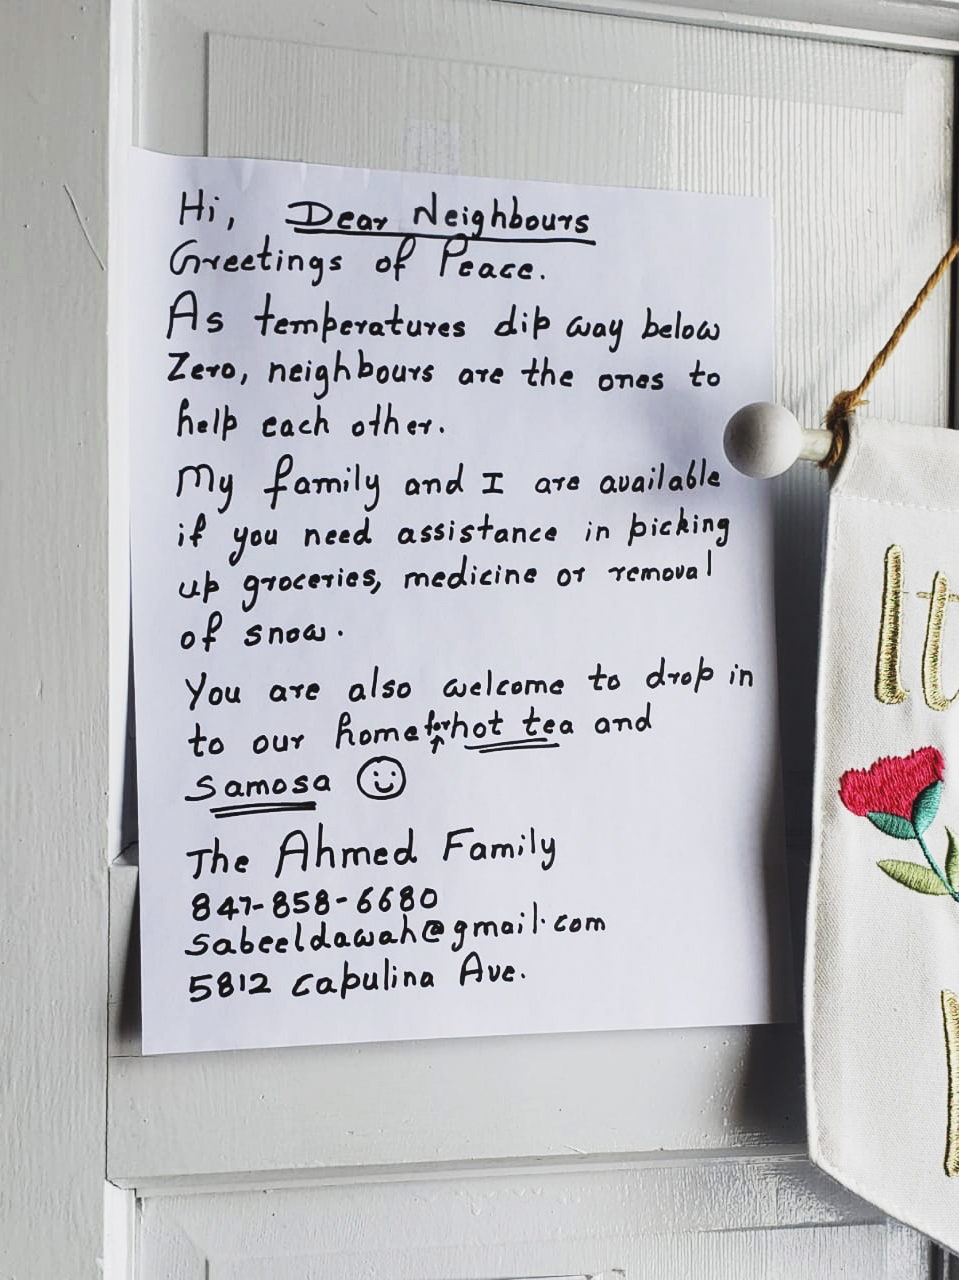 Hi, Dear Neighbours
Greetings of Peace.
As temperatures dip way below
Zero, neighbours are the ones to
help each other.
My family and I are available
if you need assistance in picking
up groceries, medicine or removal
of snow.
You are also welcome to drop in
to our home for hot tea and
Samosa ☺
The Ahmed Family
847-858-6680
sabeeldawah@gmail.com
5812 Capulina Ave.
It